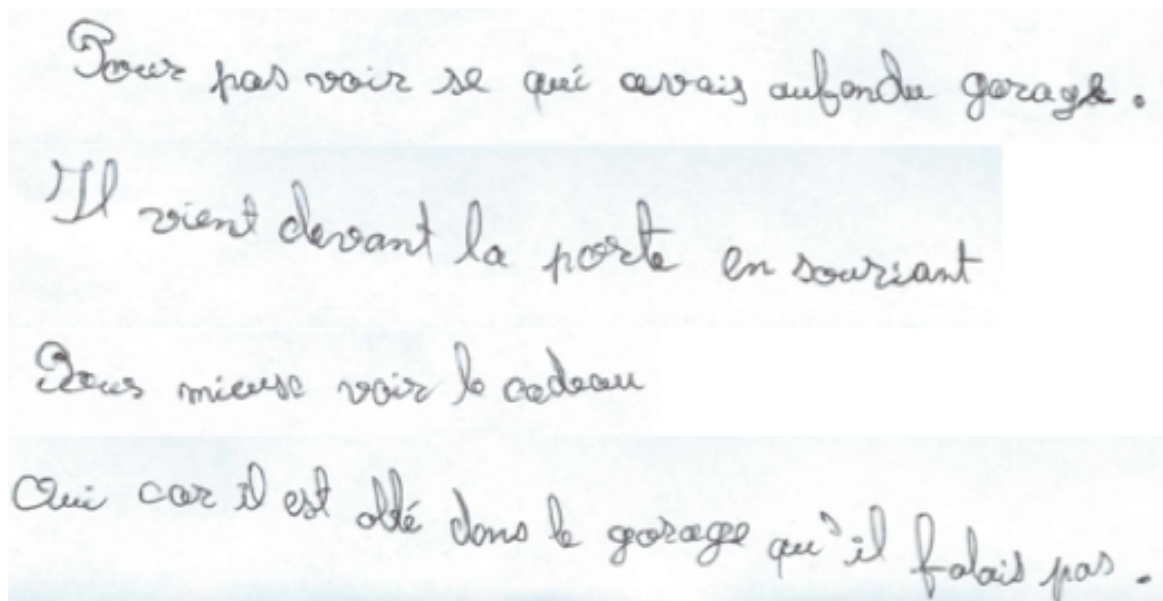 Pour pas voir se qui avais aufondu garage.
Il vient devant la porte en souriant
Pour mieuse voir le cadeau
Oui car il est allé dans le garage qu'il falais pas.